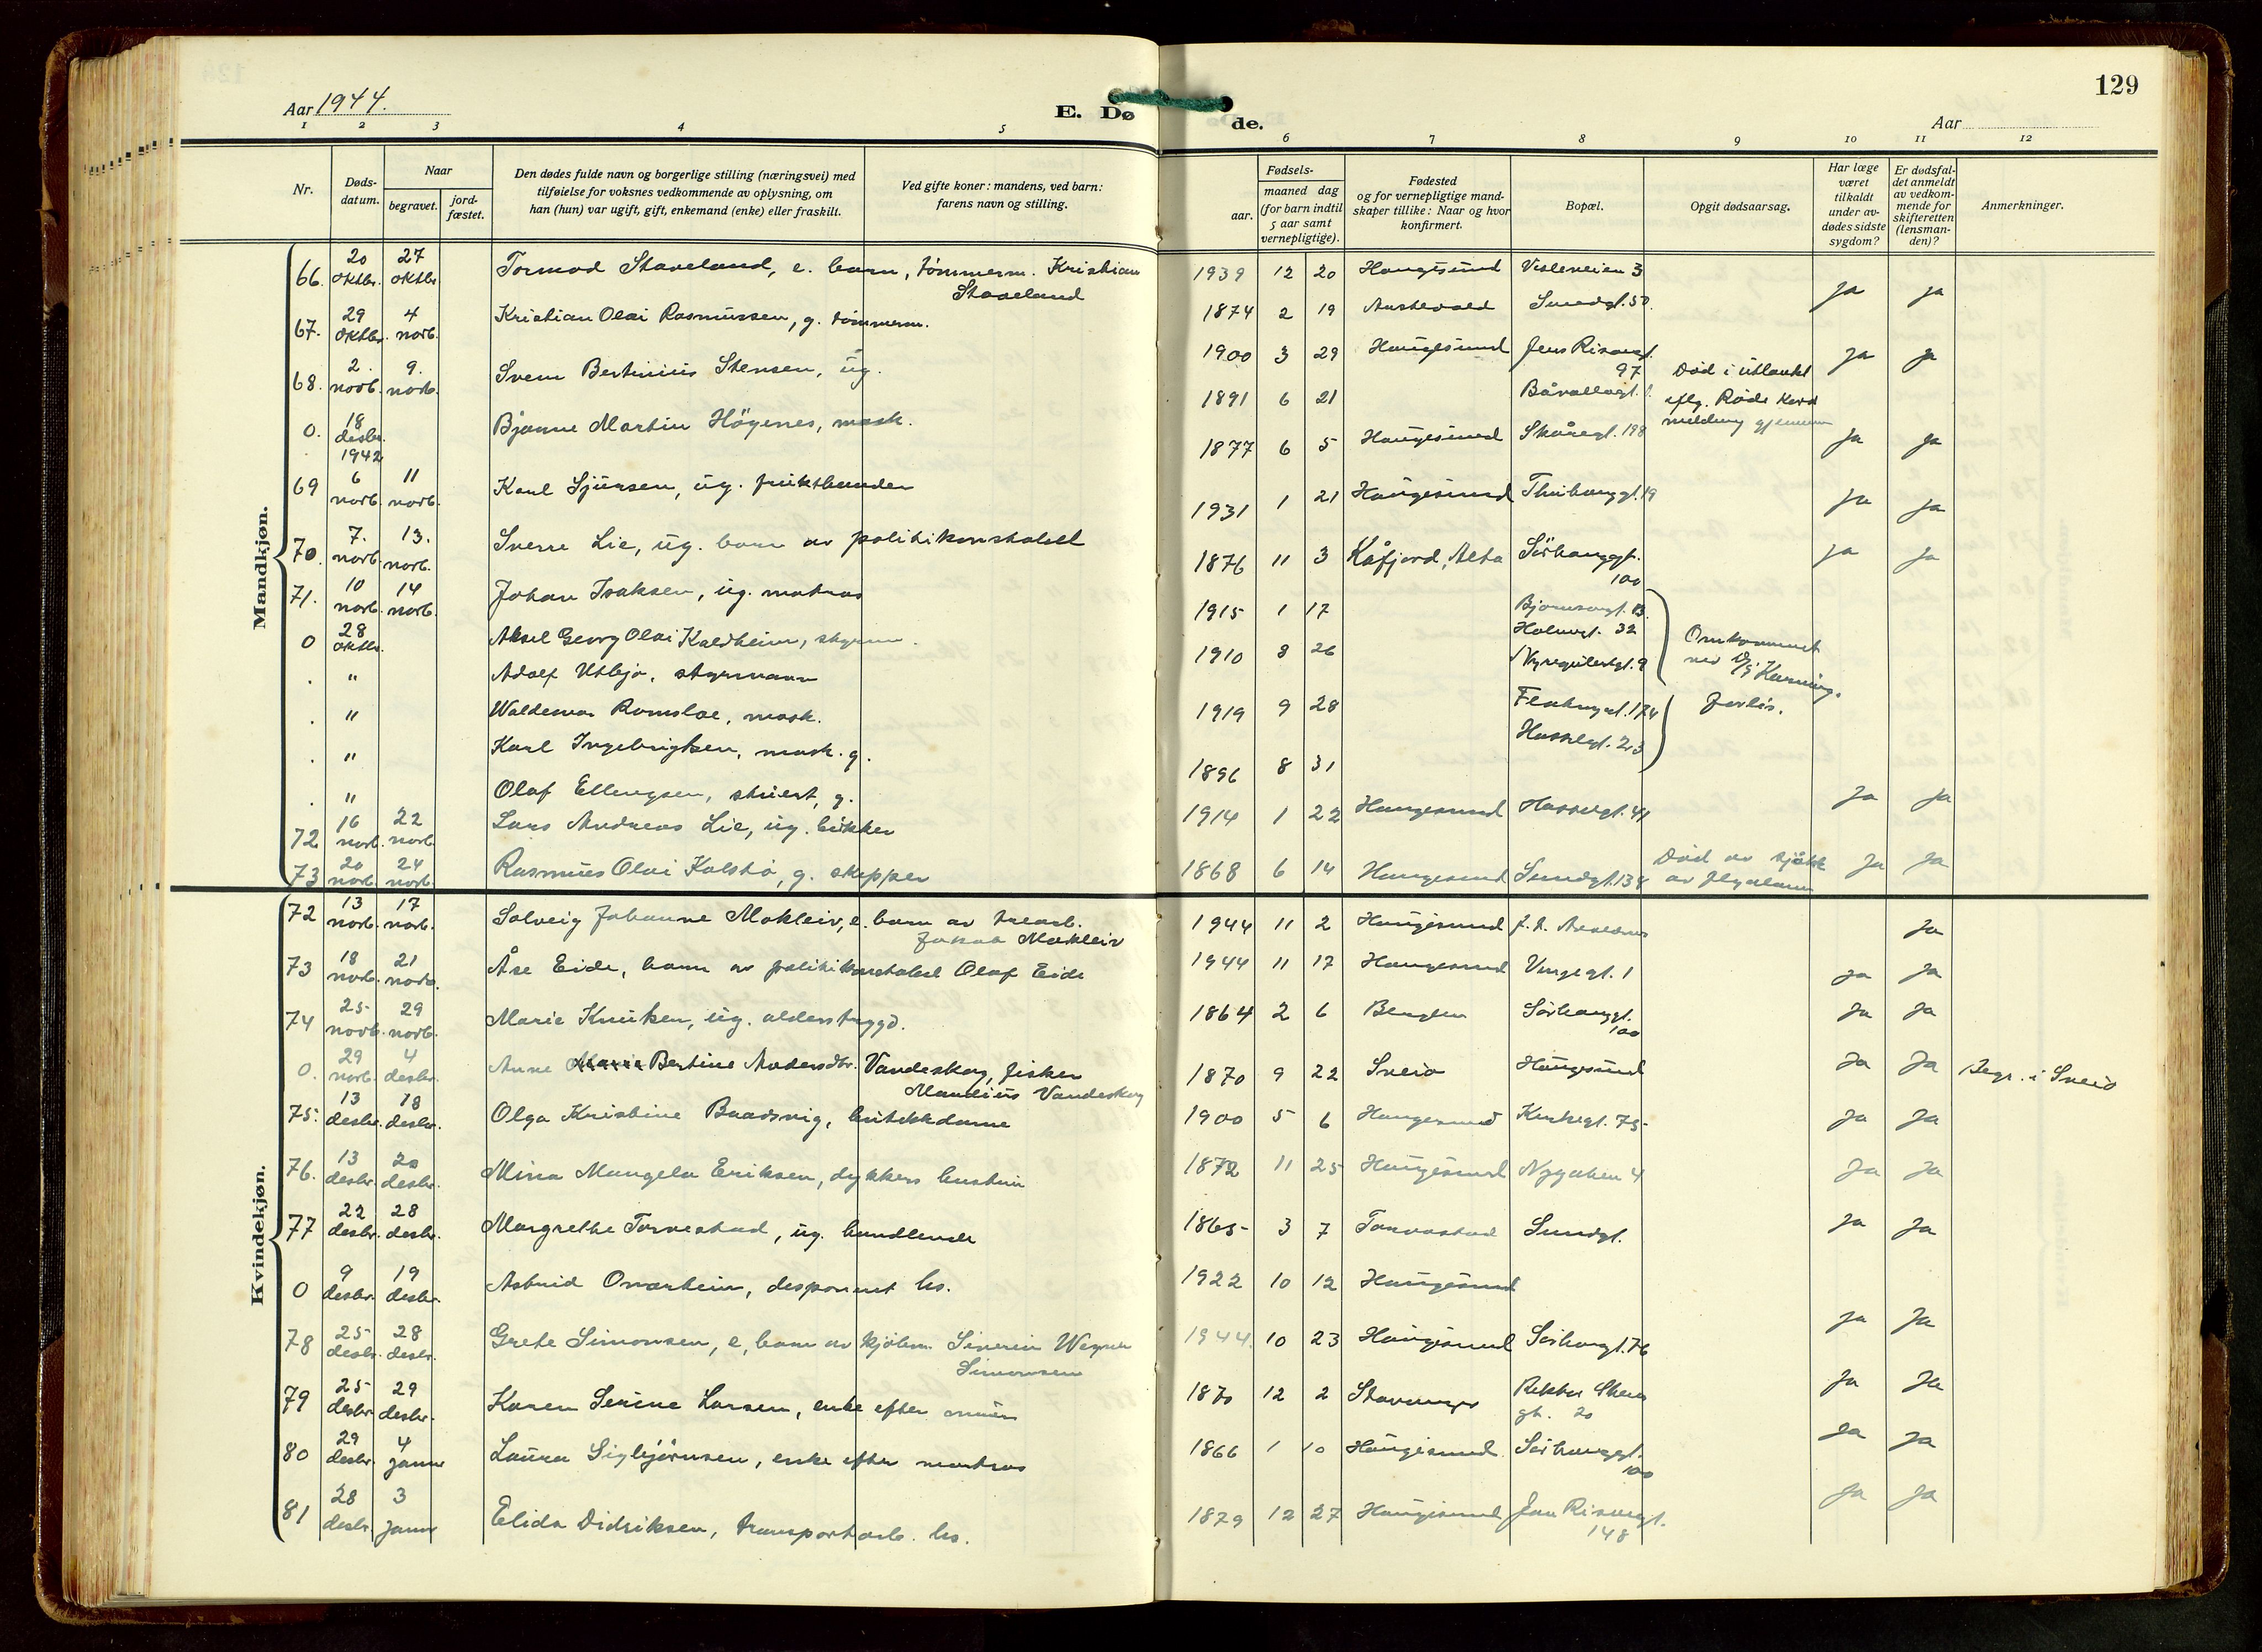 129
Aar 1944.
E. Døde.
Aar
1 2 3 4 5 6 7 8 9 10 11 12
Nr.
Døds-datum.
Naar
begravet.
jord-fæstet.
Den dødes fulde navn og borgerlige stilling (næringsvei) med
tilføielse for voksnes vedkommende av oplysning, om
han (hun) var ugift, gift, enkemand (enke) eller fraskilt.
Ved gifte koner: mandens, ved barn:
farens navn og stilling.
Fødsels-
aar.
maaned dag
(for barn indtil
5 aar samt
vernepligtige).
Fødested
og for vernepligtige mand-
skaper tillike: Naar og hvor
konfirmert.
Bopæl.
Opgit dødsaarsag.
Har læge
været
tilkaldt
under av-
dødes sidste
sygdom?
Er dødsfal-
det anmeldt
av vedkom-
mende for
skifteretten
(lensman-
den)?
Anmerkninger.
Mandkjøn.
66. 20 oktbr. 27 oktbr Tormod Staveland, e. barn, tømmerm. Kristian Staveland 1939 12 20 Haugesund 3 ja ja
67. 29 oktbr. 4 novb. Kristian Olai Rasmussen, g. tømmerm. 1874 2 19 Austevold Sundgt. 50 ja ja
68. 2. novb. 9. novb. Svein Bertinius Stensen, ug. 1900 3 29 Haugesund 97
0. 18 desbr. 1942 Bjarne Martin Högenes, mask. 1891 6 21 Død i utlandet iflg. Røde Kors melding gjennem
69 6 novb. 11 novb. Karl Sjursen, ug. frukthandler 1877 6 5 Haugesund Skåregt. 198 ja ja
70. 7. novb. 13. novb. Sverre Lie, ug. barn av politikonstabel 1931 1 21 Haugesund 19 ja ja
71. 10 novb. 14 novb. Johan Isaksen, ug. matros 1876 11 3 Kåfjord, Alta Sörhauggt. 100 ja ja
0 28 oktbr. Aksel Georg Olai Kaldheim, styrm. 1915 1 17 Bjørnsongt. 13
. " Adolf Utbjo, styrmann 1910 8 26 32
. " Waldemar Romsloe, mask. 9 Omkommet ved D/S Karming. Forlis.
. " Karl Ingebrigtsen, mask. g. 1919 9 28
. " Olaf Ellengsen, stuert, g. 1896 8 31 Hasselgt. 23
72. 16 novb. 22 novb. Lars Andreas Lie, ug. bökker 1914 1 22 Haugesund Hasselgt. 41 ja ja
73 20 novb. 24 novb. Rasmus Olai Kalstø, g. skipper 1868 6 14 Haugesund Sundgt. 134 Død av sjokk av flyalarm Ja Ja
Kvindekjøn.
72 13 novb. 17 novb. Solveig Johanne Mokleiv, e. barn av trearb. Jakob Mokleiv 1944 11 2 Haugesund Ja
73 18 novb. 21 novb. Åse Eide, barn av politikonstabel Olaf Eide 1944 11 17 Haugesund 1 ja ja
74 25 novb. 29 novb. Marie Knutsen, ug. alderstrygd. 1864 2 6 Bergen Sörhauggt. 100 Ja ja
0. 29 novb. 4 desbr. Anne Bertine Andersdtr. Vandeskog, fisker Mandius Vandeskog 1870 9 22 Sveio Haugesund Ja Ja Begr. i Sveio
75. 13 desbr. 18 desbr. Olga Kristine Baadsvig, butikkdame 1900 5 6 Haugesund Kirkegt. 75 Ja Ja
76. 13 desbr. 20 desbr. Mina Mangela Eriksen, dykkers hustru 1872 11 25 Haugesund 4 Ja Ja
77 22 desbr. 28 desbr. Margrethe Torvestad, ug. handlende 1865 3 7 Torvastad Sundgt. Ja Ja
0 9 desbr. 19 desbr. Astrid Onarheim, disponent hs. 1922 10 12 Haugesund
78 25 desbr. 28 desbr. Grete Simonsen, e. barn av kjølem. Severin Wegner Simonsen 1944 10 23 Haugesund Sörhauggt. 76 ja Ja
79 25 desbr. 29 desbr. Karen Serine Larsen, enke efter murer 1870 12 2 Stavanger gt. 20 Ja Ja
80 29 desbr. 4 januar Laura Sigbjørnsen, enke efter matros 1866 1 10 Haugesund Sörhauggt. 100 Ja Ja
81 28 desbr. 3 januar Elida Didriksen, transportarb. hs. 1879 12 27 Haugesund 148 Ja Ja